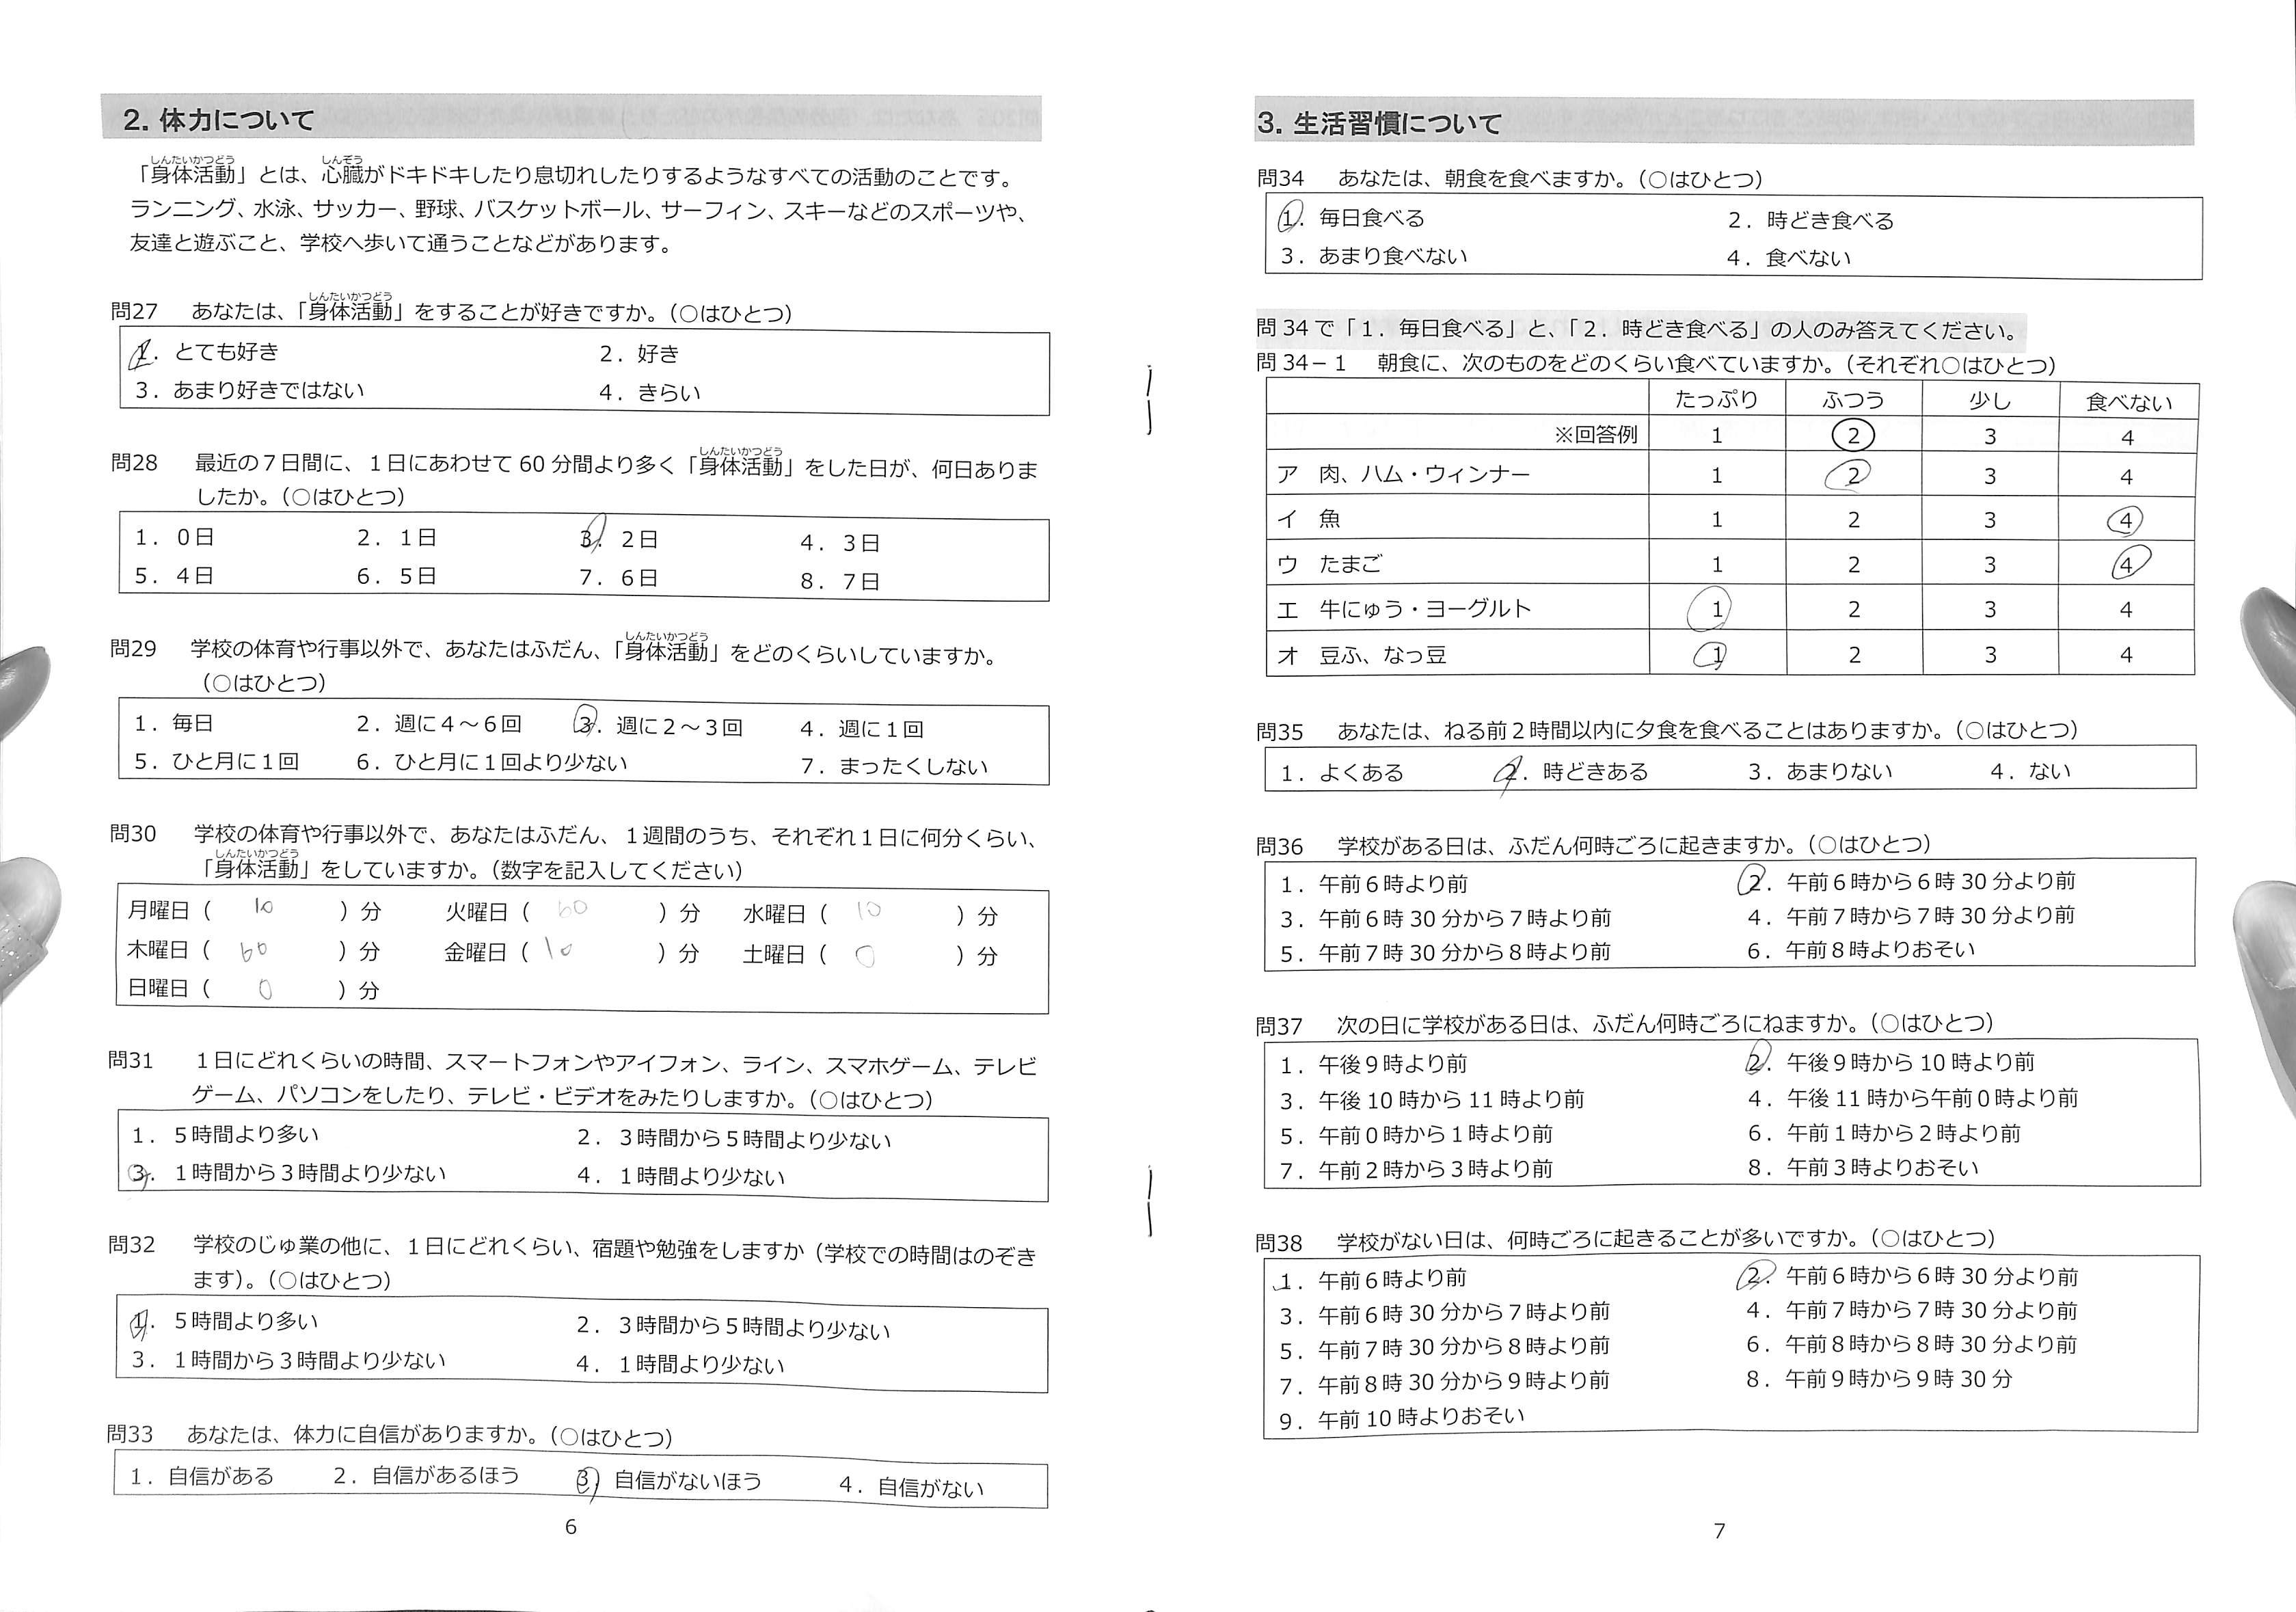 2. 体力について
「身体活動」とは、心臓がドキドキしたり息切れしたりするようなすべての活動のことです。
ランニング、水泳、サッカー、野球、バスケットボール、サーフィン、スキーなどのスポーツや、
友達と遊ぶこと、学校へ歩いて通うことなどがあります。
問27 あなたは、「身体活動」をすることが好きですか。(○はひとつ)
1. とても好き 2. 好き
3. あまり好きではない 4. きらい
問28 最近の7日間に、1日にあわせて 60 分間より多く「身体活動」をした日が、何日ありま
したか。(○はひとつ)
1. 0日 2. 1日 3. 2日 4. 3日
5. 4日 6. 5日 7. 6日 8. 7日
問29 学校の体育や行事以外で、あなたはふだん、「身体活動」をどのくらいしていますか。
(○はひとつ)
1. 毎日 2. 週に4～6回 3. 週に2～3回 4. 週に1回
5. ひと月に1回 6. ひと月に1回より少ない 7. まったくしない
問30 学校の体育や行事以外で、あなたはふだん、1週間のうち、それぞれ1日に何分くらい、
「身体活動」をしていますか。(数字を記入してください)
月曜日 ( 10 ) 分 火曜日 ( 60 ) 分 水曜日 ( 10 ) 分
木曜日 ( 60 ) 分 金曜日 ( 10 ) 分 土曜日 ( 0 ) 分
日曜日 ( 0 ) 分
問31 1日にどれくらいの時間、スマートフォンやアイフォン、ライン、スマホゲーム、テレビ
ゲーム、パソコンをしたり、テレビ・ビデオをみたりしますか。(○はひとつ)
1. 5時間より多い 2. 3時間から5時間より少ない
3. 1時間から3時間より少ない 4. 1時間より少ない
問32 学校のじゅ業の他に、1日にどれくらい、宿題や勉強をしますか（学校での時間はのぞき
ます)。(○はひとつ)
1. 5時間より多い 2. 3時間から5時間より少ない
3. 1時間から3時間より少ない 4. 1時間より少ない
問33 あなたは、体力に自信がありますか。(○はひとつ)
1. 自信がある 2. 自信があるほう 3. 自信がないほう 4. 自信がない
6
3. 生活習慣について
問34 あなたは、朝食を食べますか。(○はひとつ)
1. 毎日食べる 2. 時どき食べる
3. あまり食べない 4. 食べない
問 34 で「1. 毎日食べる」と、「2. 時どき食べる」の人のみ答えてください。
問 34－1 朝食に、次のものをどのくらい食べていますか。(それぞれ○はひとつ)
たっぷり ふつう 少し 食べない
※回答例 1 2 3 4
ア 肉、ハム・ウィンナー 1 2 3 4
イ 魚 1 2 3 4
ウ たまご 1 2 3 4
エ 牛にゅう・ヨーグルト 1 2 3 4
オ 豆ふ、なっ豆 1 2 3 4
問35 あなたは、ねる前2時間以内に夕食を食べることはありますか。(○はひとつ)
1. よくある 2. 時どきある 3. あまりない 4. ない
問36 学校がある日は、ふだん何時ごろに起きますか。(○はひとつ)
1. 午前6時より前 2. 午前6時から6時 30 分より前
3. 午前6時 30 分から7時より前 4. 午前7時から7時 30 分より前
5. 午前7時 30 分から8時より前 6. 午前8時よりおそい
問37 次の日に学校がある日は、ふだん何時ごろにねますか。(○はひとつ)
1. 午後9時より前 2. 午後9時から 10 時より前
3. 午後 10 時から 11 時より前 4. 午後 11 時から午前0時より前
5. 午前0時から1時より前 6. 午前1時から2時より前
7. 午前2時から3時より前 8. 午前3時よりおそい
問38 学校がない日は、何時ごろに起きることが多いですか。(○はひとつ)
1. 午前6時より前 2. 午前6時から6時 30 分より前
3. 午前6時 30 分から7時より前 4. 午前7時から7時 30 分より前
5. 午前7時 30 分から8時より前 6. 午前8時から8時 30 分より前
7. 午前8時 30 分から9時より前 8. 午前9時から9時 30 分
9. 午前 10 時よりおそい
7